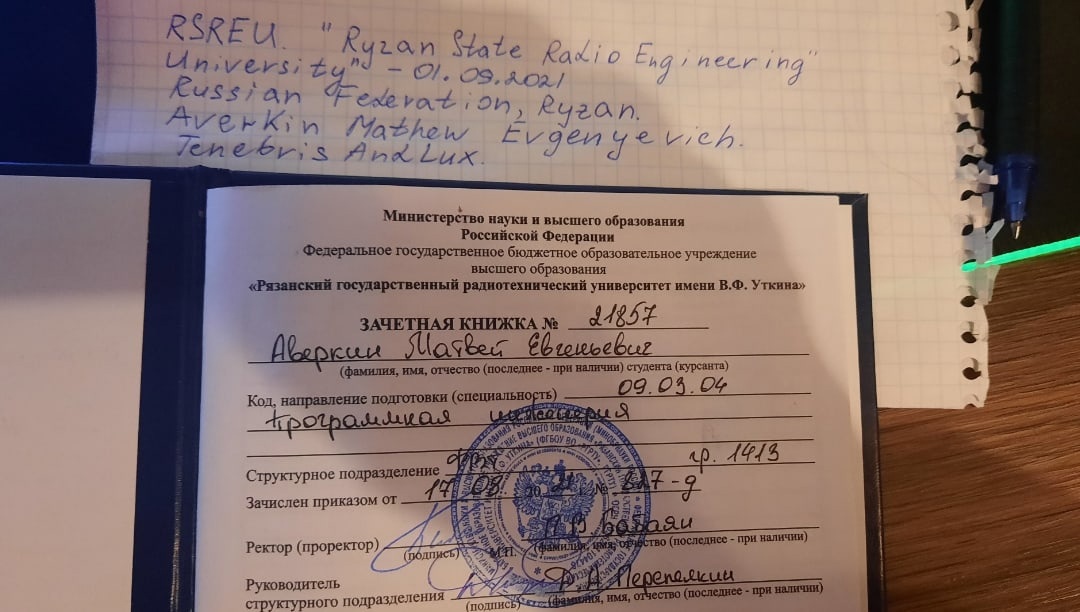 RSREU. "Ryzan State Radio Engineering"
University" - 01.09.2021
Russian Federation, Ryzan.
Averkin Mathew Evgenyevich.
Tenebris And Lux.
Министерство науки и высшего образования
Российской Федерации
Федеральное государственное бюджетное образовательное учреждение
высшего образования
«Рязанский государственный радиотехнический университет имени В.Ф. Уткина»
ЗАЧЕТНАЯ КНИЖКА № 21857
Аверкин Матвей Евгеньевич
(фамилия, имя, отчество (последнее - при наличии) студента (курсанта)
Код, направление подготовки (специальность) 09.03.04
Программная инженерия
Структурное подразделение гр. 1413
Зачислен приказом от 17 08 20 21 г. №
Ректор (проректор)
(подпись) М.П. (фамилия, имя, отчество (последнее - при наличии)
Руководитель
структурного подразделения Перепелкин
(подпись) (фамилия, имя, отчество (последнее - при наличии)